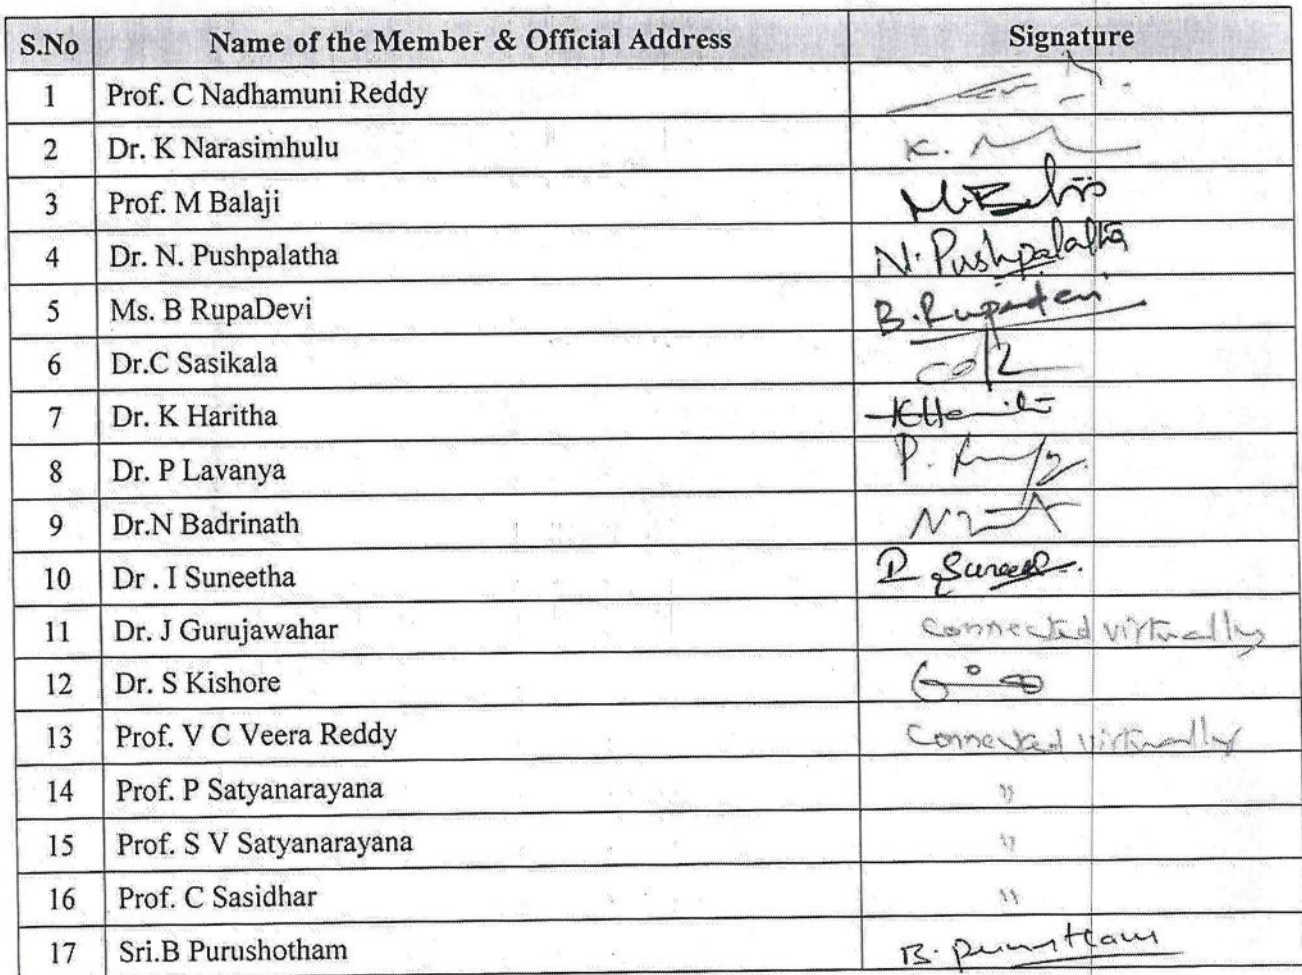 S.No Name of the Member & Official Address Signature
1 Prof. C Nadhamuni Reddy
2 Dr. K Narasimhulu K.
3 Prof. M Balaji M.Balaji
4 Dr. N. Pushpalatha N. Pushpalatha
5 Ms. B RupaDevi B.Rupadevi
6 Dr.C Sasikala
7 Dr. K Haritha KHaritha
8 Dr. P Lavanya P.
9 Dr.N Badrinath
10 Dr . I Suneetha
11 Dr. J Gurujawahar Connected virtually
12 Dr. S Kishore
13 Prof. V C Veera Reddy Connected virtually
14 Prof. P Satyanarayana "
15 Prof. S V Satyanarayana "
16 Prof. C Sasidhar "
17 Sri.B Purushotham B.